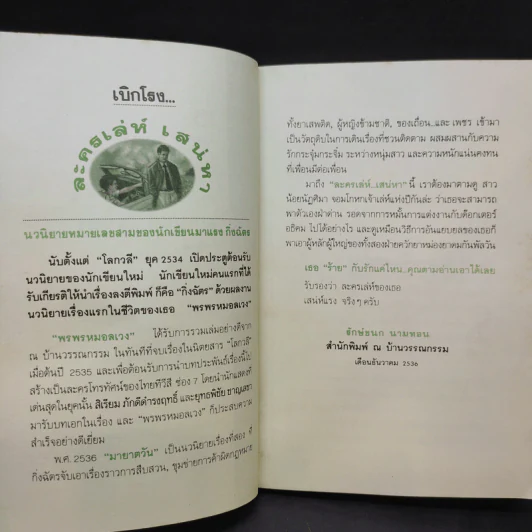 เบิกโรง...
ละครเล่ห์ เสน่หา
นวนิยายหมายเลขสามของนักเขียนมาแรง กิ่งฉัตร
นับตั้งแต่ "โลกวลี" ยุค 2534 เปิดประตูต้อนรับ
นวนิยายของนักเขียนใหม่ นักเขียนใหม่คนแรกที่ได้
รับเกียรติให้นำเรื่องลงตีพิมพ์ ก็คือ "กิ่งฉัตร" ด้วยผลงาน
นวนิยายเรื่องแรกในชีวิตของเธอ "พรพรหมอลเวง"
"พรพรหมอลเวง" ได้รับการรวมเล่มอย่างดีจาก
ณ บ้านวรรณกรรม ในทันทีที่จบเรื่องในนิตยสาร "โลกวลี"
เมื่อต้นปี 2535 และเพื่อต้อนรับการนำบทประพันธ์เรื่องนี้ไป
สร้างเป็นละครโทรทัศน์ของไทยทีวีสี ช่อง 7 โดยนำนักแสดงที่
เด่นสุดในยุคนั้น สิเรียม ภักดีดำรงฤทธิ์ และยุทธพิชัย ชาญเลขา
มารับบทเอกในเรื่อง และ "พรพรหมอลเวง" ก็ประสบความ
สำเร็จอย่างดีเยี่ยม
พ.ศ. 2536 "มายาตวัน" เป็นนวนิยายเรื่องที่สอง ที่
กิ่งฉัตรจับเอาเรื่องราวการสืบสวน, ขุมข่ายการค้าผิดกฎหมาย
ทั้งยาเสพติด, ผู้หญิงข้ามชาติ, ของเถื่อน...และ เพชร เข้ามา
เป็นวัตถุดิบในการเดินเรื่องที่ชวนติดตาม ผสมผสานกับความ
รักกระจุ๋มกระจิ๋ม ระหว่างหนุ่มสาว และความหนักแน่นคงทน
ที่เพื่อนมีต่อเพื่อน
มาถึง "ละครเล่ห์...เสน่หา" นี้ เราต้องมาตามดู สาว
น้อยนัฏศิมา จอมโกหกเจ้าเล่ห์แห่งปีกันล่ะ ว่าเธอจะสามารถ
พาตัวเองฝ่าด่าน รอดจากการหมั้นการแต่งงานกับด็อกเตอร์
อธิคม ไปได้อย่างไร และดูเหมือนวิธีการอันแยบยลของเธอก็
พาเอาผู้หลักผู้ใหญ่ของทั้งสองฝ่ายครัวยาหม่องยาดมกันพัลวัน
เธอ "ร้าย" กับรักแค่ไหน..คุณตามอ่านเอาได้เลย
รับรองว่า ละครเล่ห์ของเธอ
เสน่ห์แรง จริงๆ ครับ
ลักษ์ชนก นามทอน
สำนักพิมพ์ ณ บ้านวรรณกรรม
เดือนธันวาคม 2536